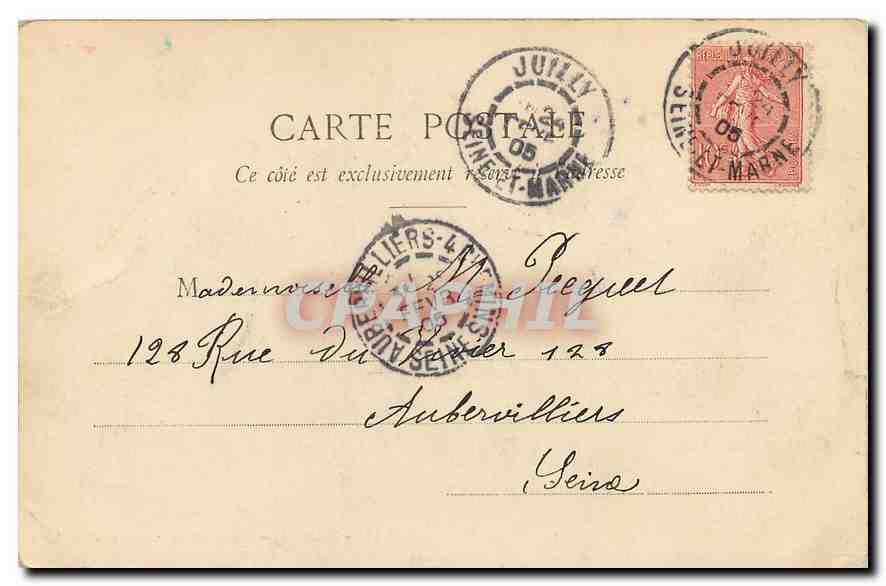 CARTE POSTALE
Ce côté est exclusivement réservé à l'adresse
JUILLY
05
SEINE-ET-MARNE
JUILLY
05
SEINE-ET-MARNE
AUBERVILLIERS-4 CHEMINS
SEINE
CPAPHIL
Mademoiselle M. Pecquet
128 Rue du Vivier 128
Aubervilliers
Seine